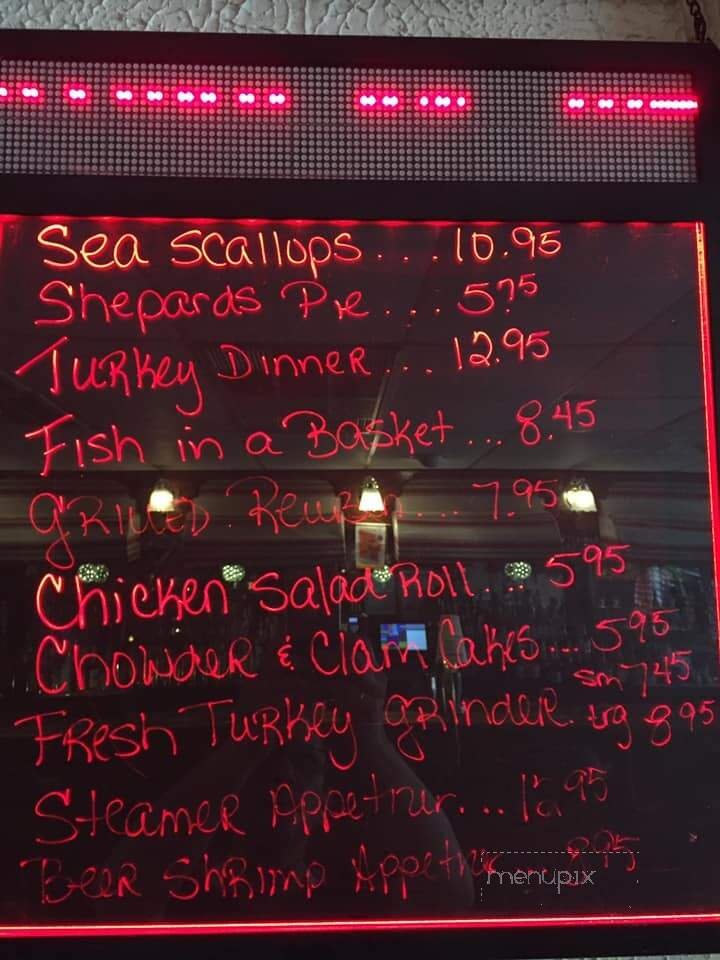 Sea Scallops....10.95
Shepards Pie....5.75
Turkey Dinner...12.95
Fish in a Basket...8.45
Grilled Reuben...7.95
Chicken Salad Roll...5.95
Chowder & Clam Cakes...5.95
sm 7.45
Fresh Turkey Grinder. Lrg 8.95
Steamer Appetizer...12.95
Beer Shrimp Appetizer 8.95
menupix